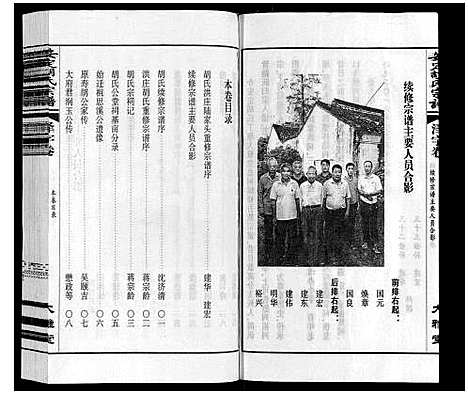 续修宗谱主要人员合影
前排右起：
国元
焕章
国良
后排右起：
建宏
建东
建伟
明华
裕兴
续修宗谱主要人员合影
大雅堂
本卷目录
续修宗谱主要人员合影
胡氏洪庄陆家头重修宗谱序 建华 建宏
胡氏续修宗谱序 沈济清 〇一
洪庄胡氏重修宗谱序 蒋宗龄 〇二
胡氏宗祠记 蒋宗龄 〇四
胡氏公堂祠基亩分录 〇五
始迁祖思溪公遗像 〇六
原寿胡公家传 吴颐吉 〇七
大府君润玉公传 懋政等 〇八
本卷目录
大雅堂